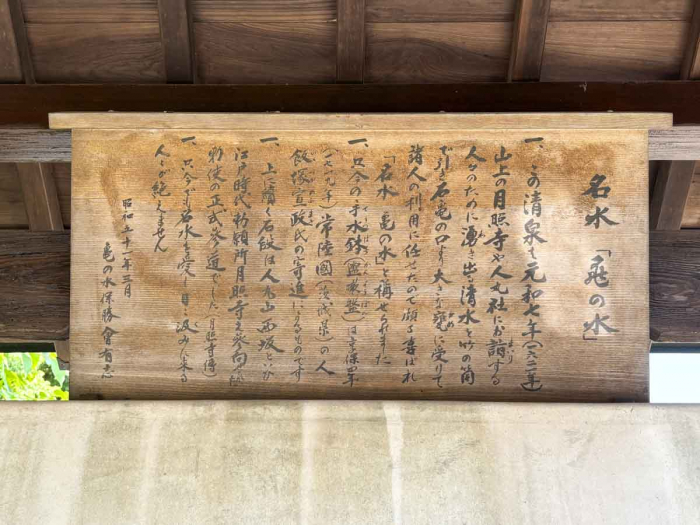 名水「亀の水」
一、この清泉は元和七年(一六二一年)
山上の月照寺や人丸社にお詣する
人々のために湧き出る清水を竹の筒
で引き石亀の口より大きな甕に受けて
諸人の利用に任せたので頗る喜ばれ
「名水 亀の水」と称せられました
一、只今の手水鉢(盥漱盤)は享保四年
(一七一九年)常陸國(茨城県)の人
飯塚宣政氏の寄進によるものです
一、上に続く石段は人丸山西坂といい
江戸時代勅願所月照寺え参向の
勅使の正式参道でした(月照寺傳)
一、只今でも名水を愛し日々汲みに来る
人々が絶えません
昭和五十一年三月
亀の水保勝會有志